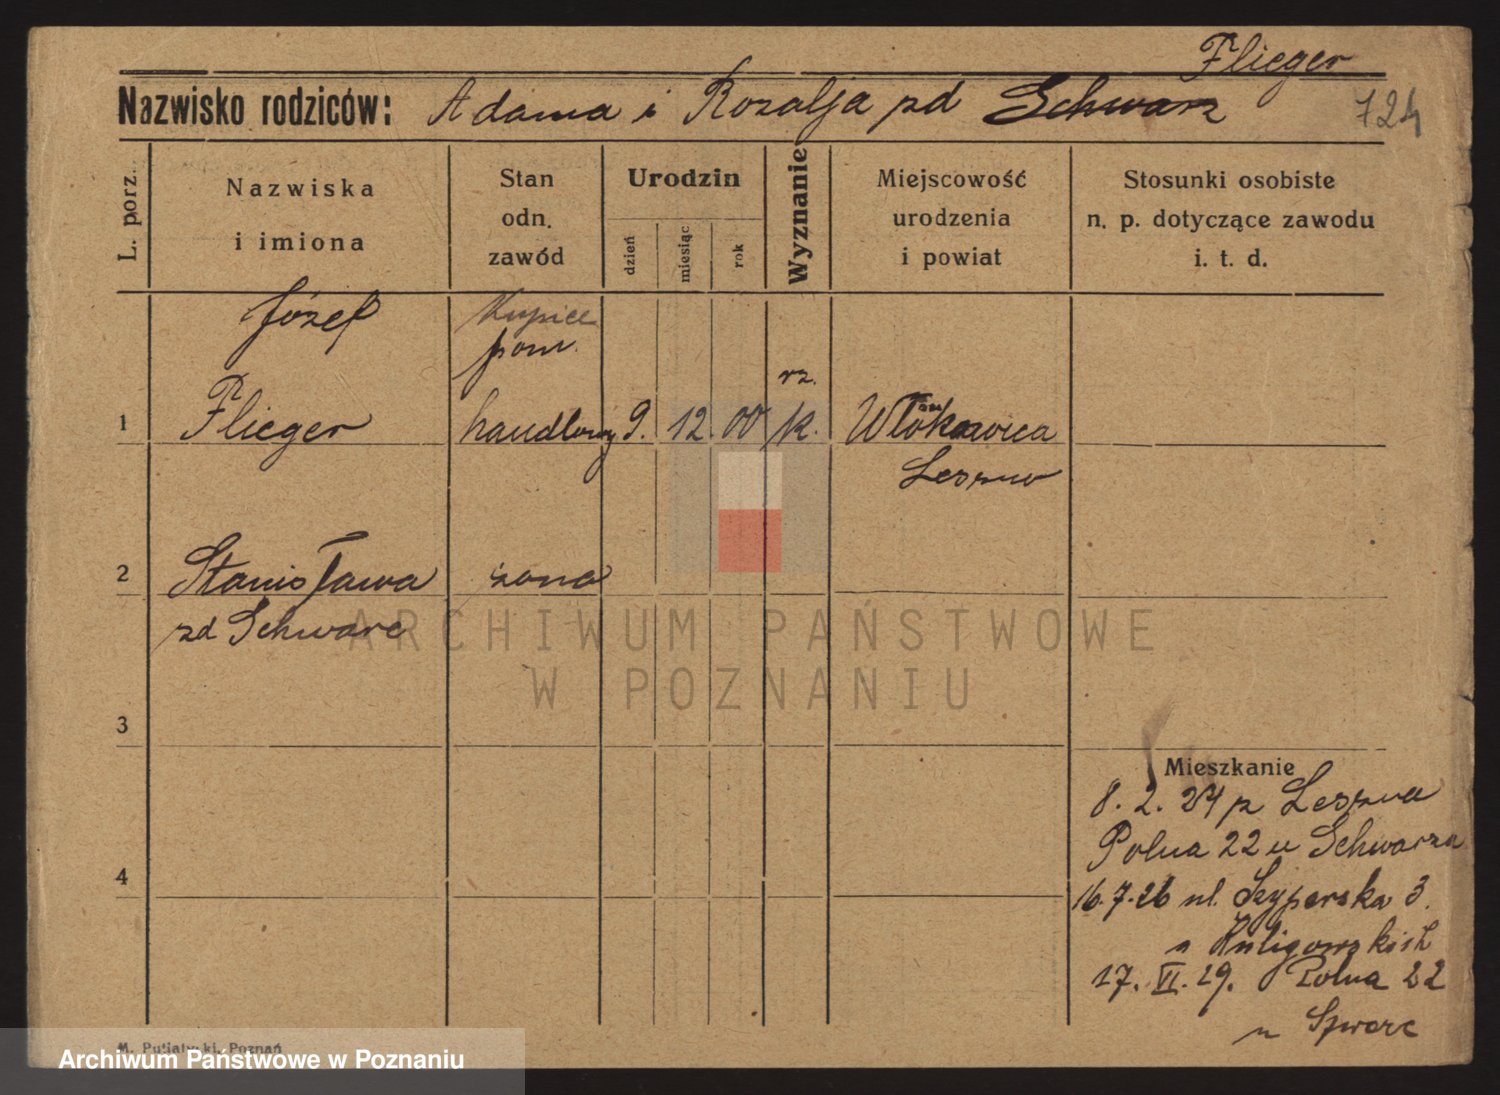 Flieger
Nazwisko rodziców: Adama i Rozalja zd Schwarz
724
L. porz.
Nazwiska
i imiona
Stan
odn.
zawód
Urodzin
dzień
miesiąc
rok
Wyznanie
Miejscowość
urodzenia
i powiat
Stosunki osobiste
n. p. dotyczące zawodu
i. t. d.
Józef
Kupiec
pom.
rz.
1 Flieger handlowy 9. 12. 00 k.
Leszno
2 Stanisława żona
zd Schwarc
ARCHIWUM PAŃSTWOWE
W POZNANIU
3
Mieszkanie
8. 2. 24 z Leszna
Polna 22 u Schwarza
4
16.7.26 ul. Szyperska 3.
u
17. VI. 29. Polna 22
u Szwarc
M. Putiatycki, Poznań
Archiwum Państwowe w Poznaniu